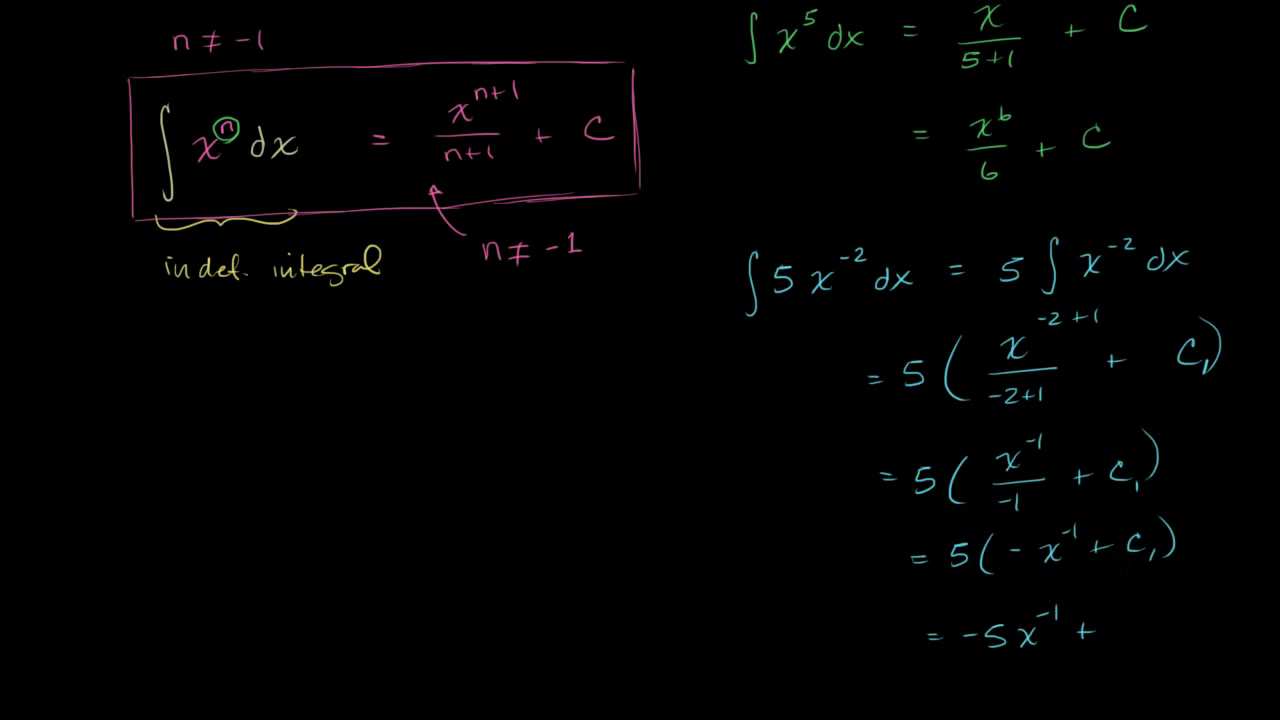 n ≠ -1
∫ xⁿ dx = xⁿ⁺¹/(n+1) + C
n ≠ -1
indef. integral
∫ x⁵ dx = x/(5+1) + C
= x⁶/6 + C
∫ 5 x⁻² dx = 5 ∫ x⁻² dx
= 5 ( x⁻²⁺¹/(-2+1) + C₁)
= 5 ( x⁻¹/-1 + C₁)
= 5 (- x⁻¹ + C₁)
= -5x⁻¹ +